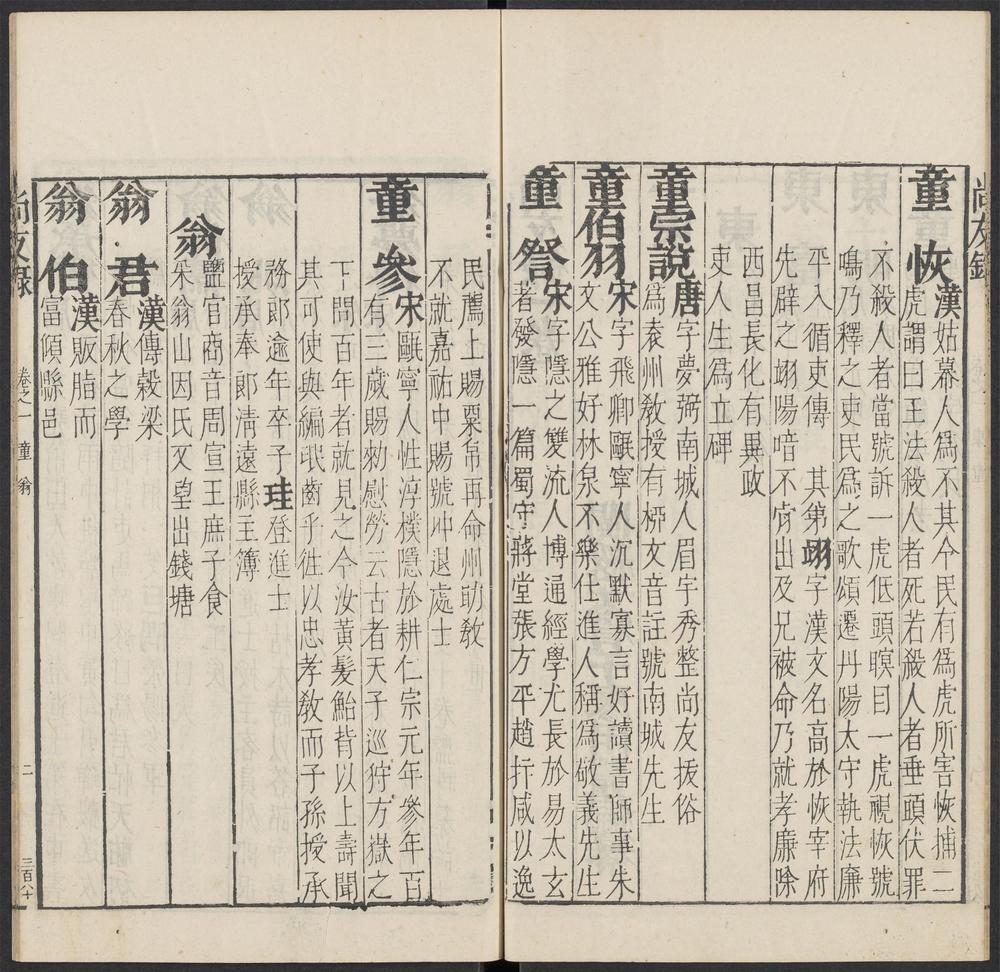 尚友錄
童恢漢姑幕人爲不其令民有爲虎所害恢捕二
虎謂曰王法殺人者死若殺人者垂頭伏罪
不殺人者當號訴一虎低頭瞑目一虎視恢號
鳴乃釋之吏民爲之歌頌遷丹陽太守執法廉
平入循吏傳 其第翊字漢文名高於恢宰府
先辟之翊陽喑不肯出及兄被命乃就孝廉除
西昌長化有異政
吏人生爲立碑
童宗說唐字夢弼南城人眉宇秀整尚友拔俗
爲袁州敎授有栁文音註號南城先生
童伯羽宋字飛卿甌寧人沉默寡言好讀書師事朱
文公雅好林泉不樂仕進人稱爲敬義先生
童詧宋字隱之雙流人博通經學尤長於易太玄
著發隱一篇蜀守蔣堂張方平趙抃咸以逸
民薦上賜粟帛再命州助敎
不就嘉祐中賜號冲退處士
童參宋甌寧人性淳樸隱於耕仁宗元年參年百
有三歲賜勑慰勞云古者天子巡狩方嶽之
下問百年者就見之今汝黃髮鮐背以上壽聞
其可使與編氓齒乎徃以忠孝敎而子孫授承
務郎逾年卒子珪登進士
授承奉郎淸遠縣主簿
翁鹽官商音周宣王庶子食
采翁山因氏又望出錢塘
翁君漢傳穀梁
春秋之學
翁伯漢販脂而
富傾縣邑
尚友錄
卷之一
童翁
二
三百八十